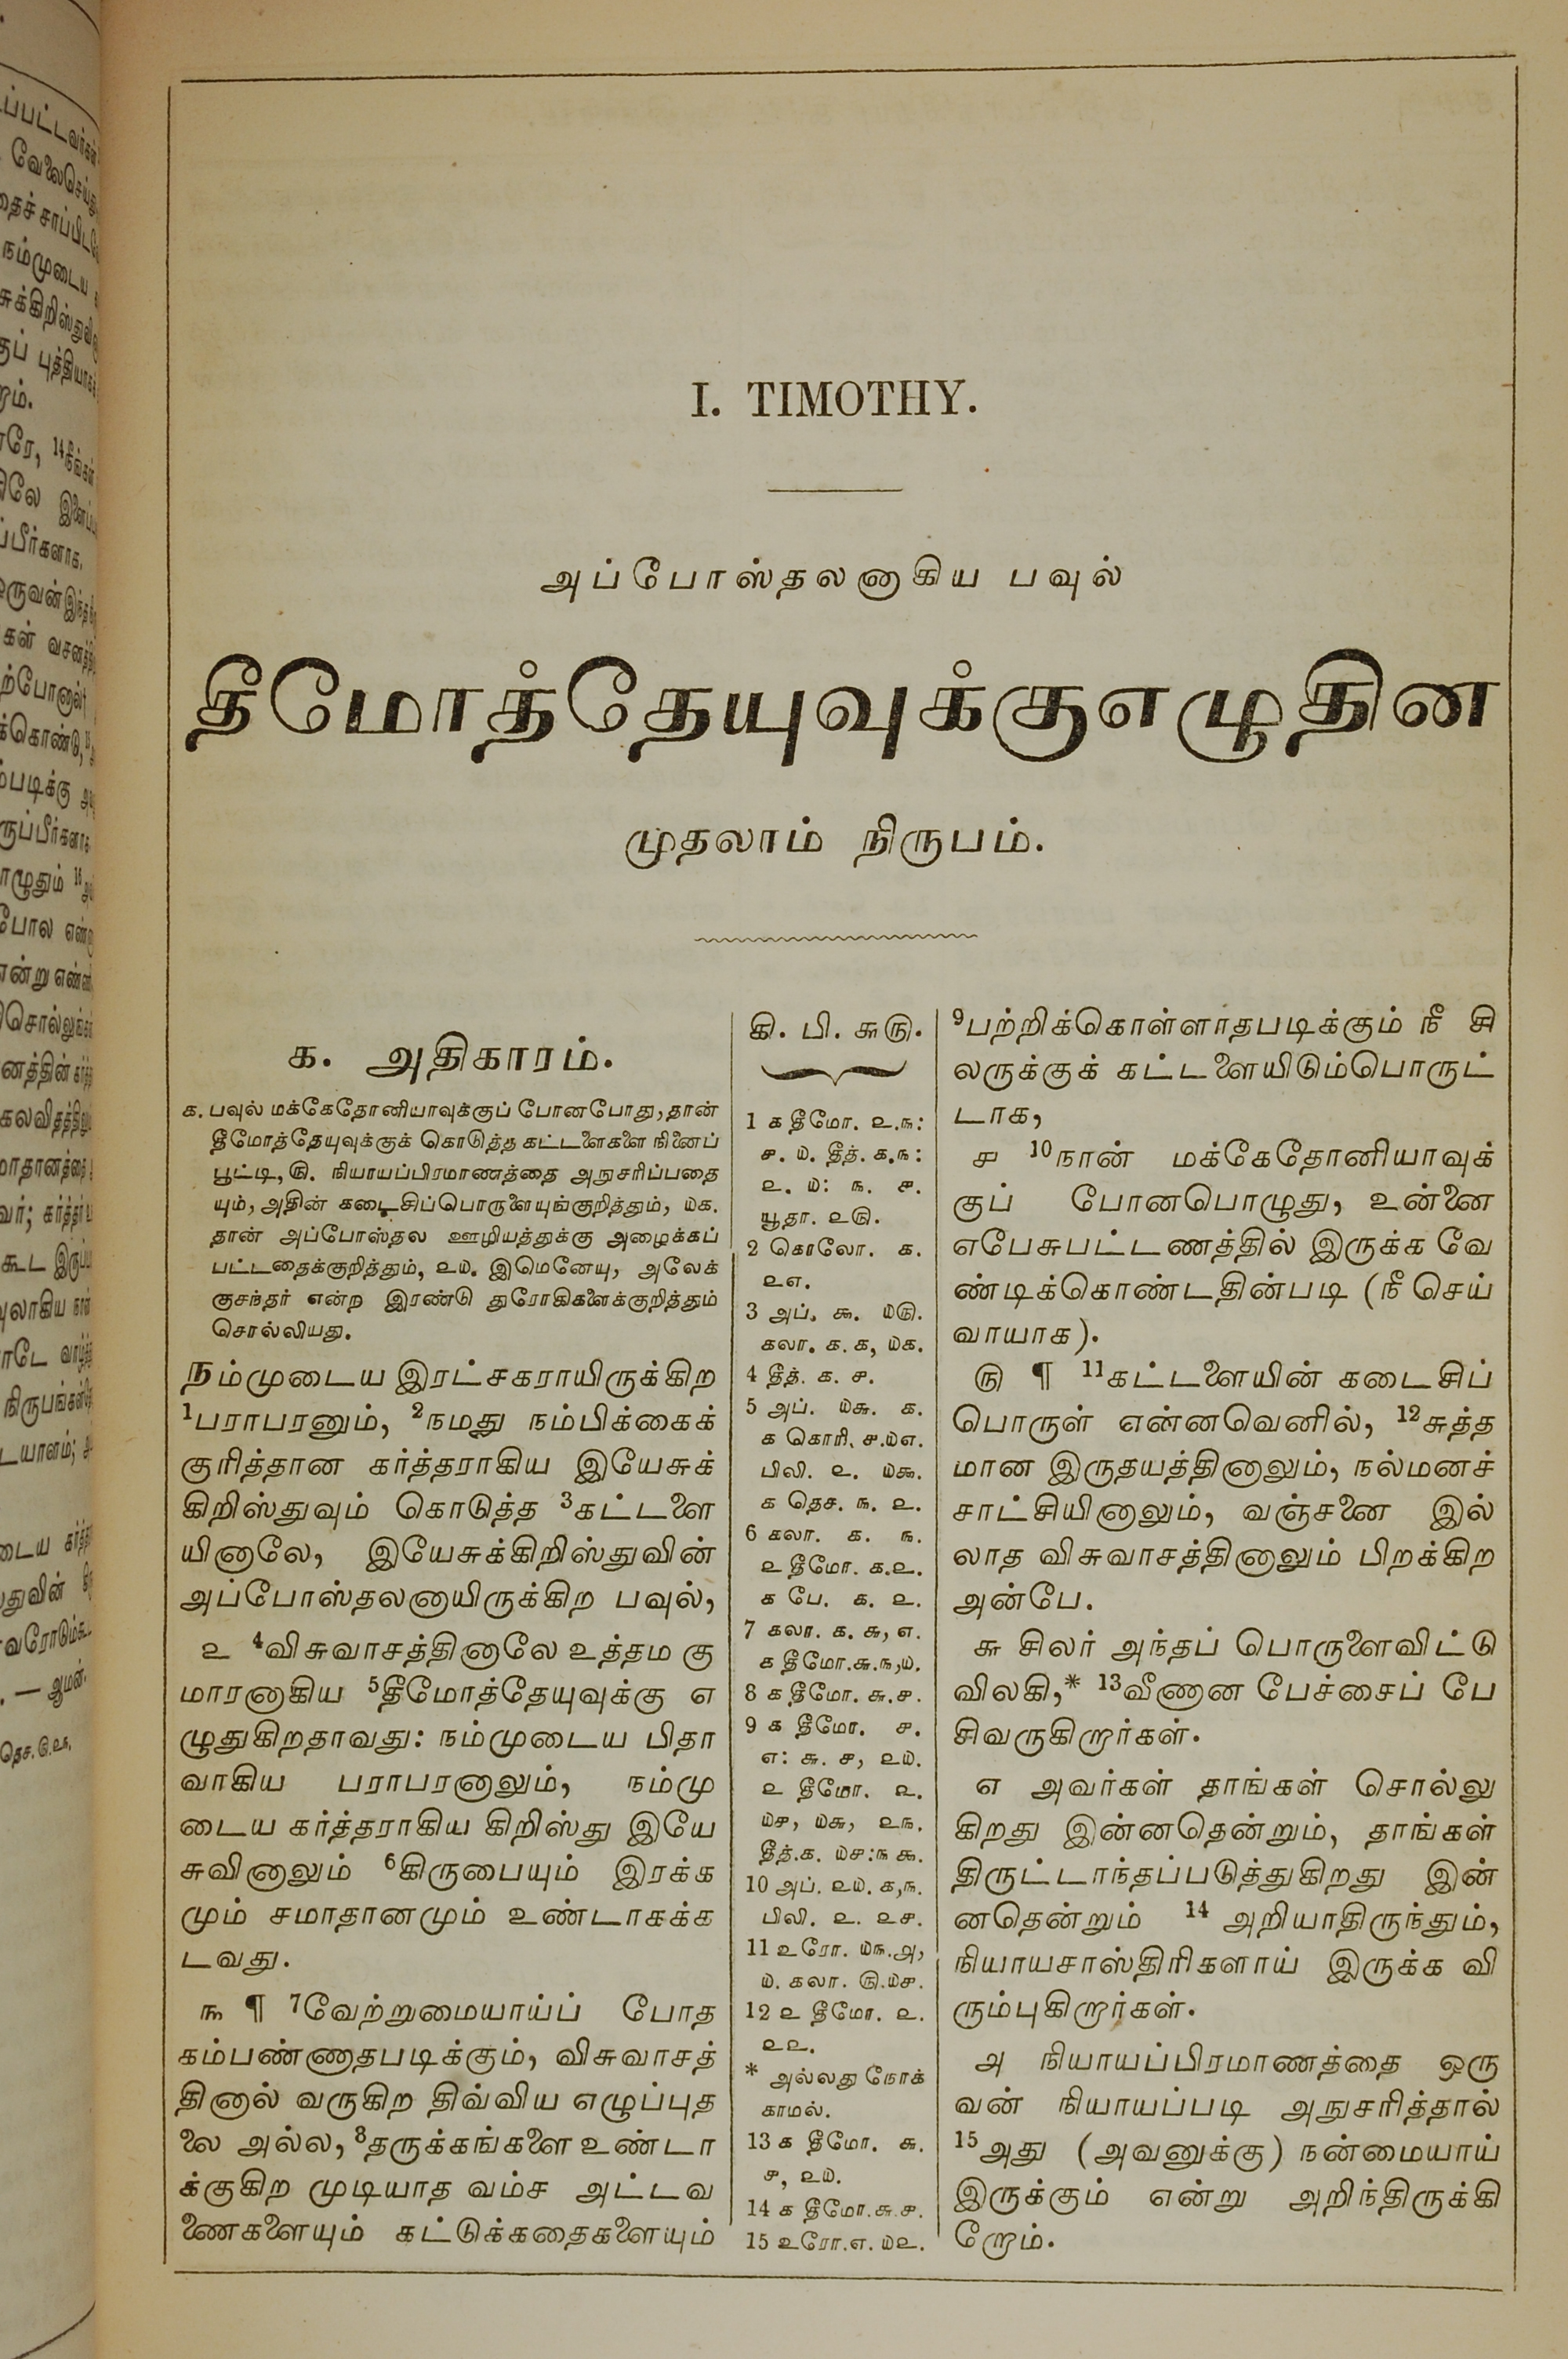 I. TIMOTHY.
அப்போஸ்தலனாகிய பவுல்
தீமோத்தேயுவுக்குஎழுதின
முதலாம் நிருபம்.
௧. அதிகாரம்.
௧. பவுல் மக்கேதோனியாவுக்குப் போனபோது, தான்
தீமோத்தேயுவுக்குக் கொடுத்த கட்டளைகளை நினைப்
பூட்டி, ௫. நியாயப்பிரமாணத்தை அநுசரிப்பதை
யும், அதின் கடைசிப்பொருளையுங்குறித்தும், ௰௧.
தான் அப்போஸ்தல ஊழியத்துக்கு அழைக்கப்
பட்டதைக்குறித்தும், ௨௰. இமெனேயு, அலேக்
குசந்தர் என்ற இரண்டு துரோகிகளைக்குறித்தும்
சொல்லியது.
நம்முடைய இரட்சகராயிருக்கிற
¹பராபரனும், ²நமது நம்பிக்கைக்
குரித்தான கர்த்தராகிய இயேசுக்
கிறிஸ்துவும் கொடுத்த ³கட்டளை
யினாலே, இயேசுக்கிறிஸ்துவின்
அப்போஸ்தலனாயிருக்கிற பவுல்,
௨ ⁴விசுவாசத்தினாலே உத்தம கு
மாரனாகிய ⁵தீமோத்தேயுவுக்கு எ
ழுதுகிறதாவது: நம்முடைய பிதா
வாகிய பராபரனாலும், நம்மு
டைய கர்த்தராகிய கிறிஸ்து இயே
சுவினாலும் ⁶கிருபையும் இரக்க
மும் சமாதானமும் உண்டாகக்க
டவது.
௩ ¶ ⁷வேற்றுமையாய்ப் போத
கம்பண்ணாதபடிக்கும், விசுவாசத்
தினால் வருகிற திவ்விய எழுப்புத
லை அல்ல, ⁸தருக்கங்களை உண்டா
க்குகிற முடியாத வம்ச அட்டவ
ணைகளையும் கட்டுக்கதைகளையும்
கி. பி. ௬௫.
1 ௧ தீமோ. ௨.௩:
௪. ௰. தீத். ௧.௩:
௨. ௰: ௩. ௪.
யூதா. ௨௫.
2 கொலோ. ௧.
௨௭.
3 அப். ௯. ௰௫.
கலா. ௧.௧, ௰௧.
4 தீத். ௧. ௪.
5 அப். ௰௬. ௧.
௧ கொரி. ௪.௰௭.
பிலி. ௨. ௰௯.
௧ தெச. ௩. ௨.
6 கலா. ௧. ௩.
௨ தீமோ. ௧.௨.
௧ பே. ௧. ௨.
7 கலா. ௧. ௬, ௭.
௧ தீமோ.௬.௩,௰.
8 ௧ தீமோ. ௬.௪.
9 ௧ தீமோ. ௪.
௭: ௬. ௪, ௨௰.
௨ தீமோ. ௨.
௰௪, ௰௬, ௨௩.
தீத்.௧. ௰௪:௩ ௯.
10 அப். ௨௰. ௧,௩.
பிலி. ௨. ௨௪.
11 உரோ. ௰௩.௮,
௰. கலா. ௫.௰௪.
12 ௨ தீமோ. ௨.
௨௨.
* அல்லது நோக்
காமல்.
13 ௧ தீமோ. ௬.
௪, ௨௰.
14 ௧ தீமோ.௬.௪.
15 உரோ.௭. ௰௨.
⁹பற்றிக்கொள்ளாதபடிக்கும் நீ சி
லருக்குக் கட்டளையிடும்பொருட்
டாக,
௪ ¹⁰நான் மக்கேதோனியாவுக்
குப் போனபொழுது, உன்னை
எபேசுபட்டணத்தில் இருக்க வே
ண்டிக்கொண்டதின்படி (நீ செய்
வாயாக).
௫ ¶ ¹¹கட்டளையின் கடைசிப்
பொருள் என்னவெனில், ¹²சுத்த
மான இருதயத்தினாலும், நல்மனச்
சாட்சியினாலும், வஞ்சனை இல்
லாத விசுவாசத்தினாலும் பிறக்கிற
அன்பே.
௬ சிலர் அந்தப் பொருளைவிட்டு
விலகி,* ¹³வீணான பேச்சைப் பே
சிவருகிறார்கள்.
௭ அவர்கள் தாங்கள் சொல்லு
கிறது இன்னதென்றும், தாங்கள்
திருட்டாந்தப்படுத்துகிறது இன்
னதென்றும் ¹⁴ அறியாதிருந்தும்,
நியாயசாஸ்திரிகளாய் இருக்க வி
ரும்புகிறார்கள்.
௮ நியாயப்பிரமாணத்தை ஒரு
வன் நியாயப்படி அநுசரித்தால்
¹⁵அது (அவனுக்கு) நன்மையாய்
இருக்கும் என்று அறிந்திருக்கி
றோம்.